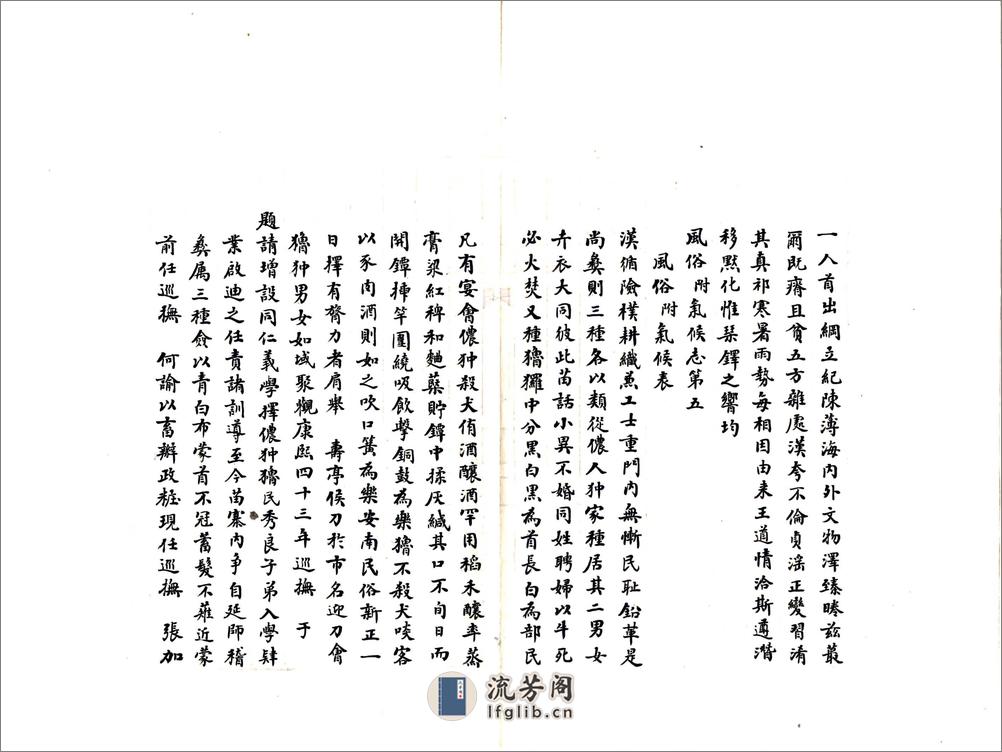 一人首出綱立紀陳薄海內外文物澤臻睠茲叢
爾旣瘠且貧五方雜處漢夸不倫貞滛正變習淆
其真祁寒暑雨勢每相因由来王道情洽斯遵潛
移黙化惟琹鐸之響均
風俗附氣候志第五
風俗附氣候表
漢循險樸耕織魚工士重門內無慚民耻鉛革是
尚彝則三種各以類從儂人狆家種居其二男女
卉衣大同彼此苗話小異不婚同姓聘婦以牛死
必火焚又種獞玀中分黑白黑為首長白為部民
凡有宴會儂狆殺犬侑酒釀酒罕用稻禾釀率蒸
膏粱紅稗和麯蘗貯罈中揉灰緘其口不旬日而
開罈挿竿圍繞吸飲擊銅鼓為樂獞不殺犬啖客
以豕肉酒則如之吹口簧為樂安南民俗新正一
日擇有膂力者肩舉 壽亭侯刀扵市名迎刀會
獞狆男女如堿聚觀康熙四十三年巡撫 于
題請增設同仁義學擇儂狆獞民秀良子弟入學肄
業啟迪之任責諸訓導至今苗寨內爭自延師稽
彝属三種僉以青白布蒙首不冠蓄髮不薙近蒙
前任巡撫 何諭以畜辮政粧現任巡撫 張加
流芳阁
lfglib.cn